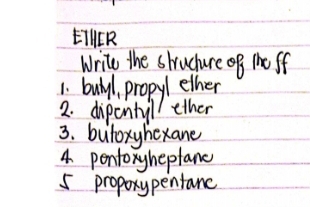 ETHER
Write the structure of the ff
1. butyl, propyl ether
2. dipentyl ether
3. butoxyhexane
4. pentoxyheptane
5 propoxypentane